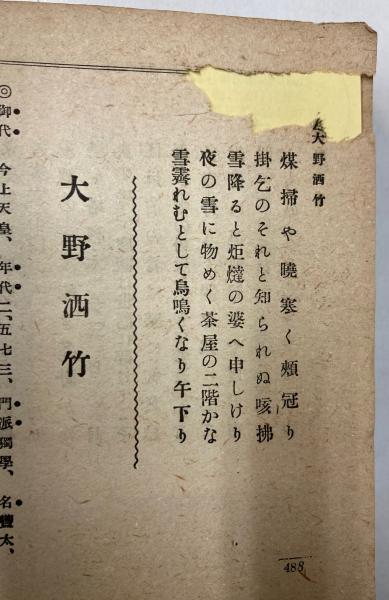 大野洒竹
煤掃や曉寒く頰冠り
掛乞のそれと知られぬ咳拂
雪降ると炬燵の婆へ申しけり
夜の雪に物めく茶屋の二階かな
雪霽れむとして鳥鳴くなり午下り
大野洒竹
◎御代 今上天皇、年代二、五七三、門派獨學、名豐太、
488